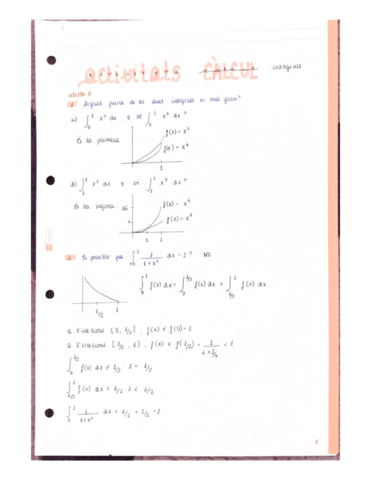 activitats CÀLCUL integrals
1 Digues quina de les dues integrals és més gran?
a) ∫₀¹ x² dx , o bé ∫₀¹ x⁴ dx ?
És la primera
f(x) = x²
f(x) = x⁴
1
b) ∫₁² x² dx o bé ∫₁² x⁴ dx ?
És la segona
16
f(x) = x⁴
4
f(x) = x²
1 2
2 És possible que ∫₀¹ 1/(1+x²) dx = 1 ? No
∫₀¹ f(x) dx = ∫₀^{1/2} f(x) dx + ∫_{1/2}^1 f(x) dx
1/2 1
a l'interval [0, 1/2] , f(x) ≤ f(0) = 1
a l'interval [1/2, 1] , f(x) ≤ f(1/2) = 1/(1+1/4) < 1
∫₀^{1/2} f(x) dx ≤ 1/2 · 1 = 1/2
∫_{1/2}^1 f(x) dx < 1/2 · 1 < 1/2
∫₀¹ 1/(1+x²) dx < 1/2 + 1/2 = 1
1